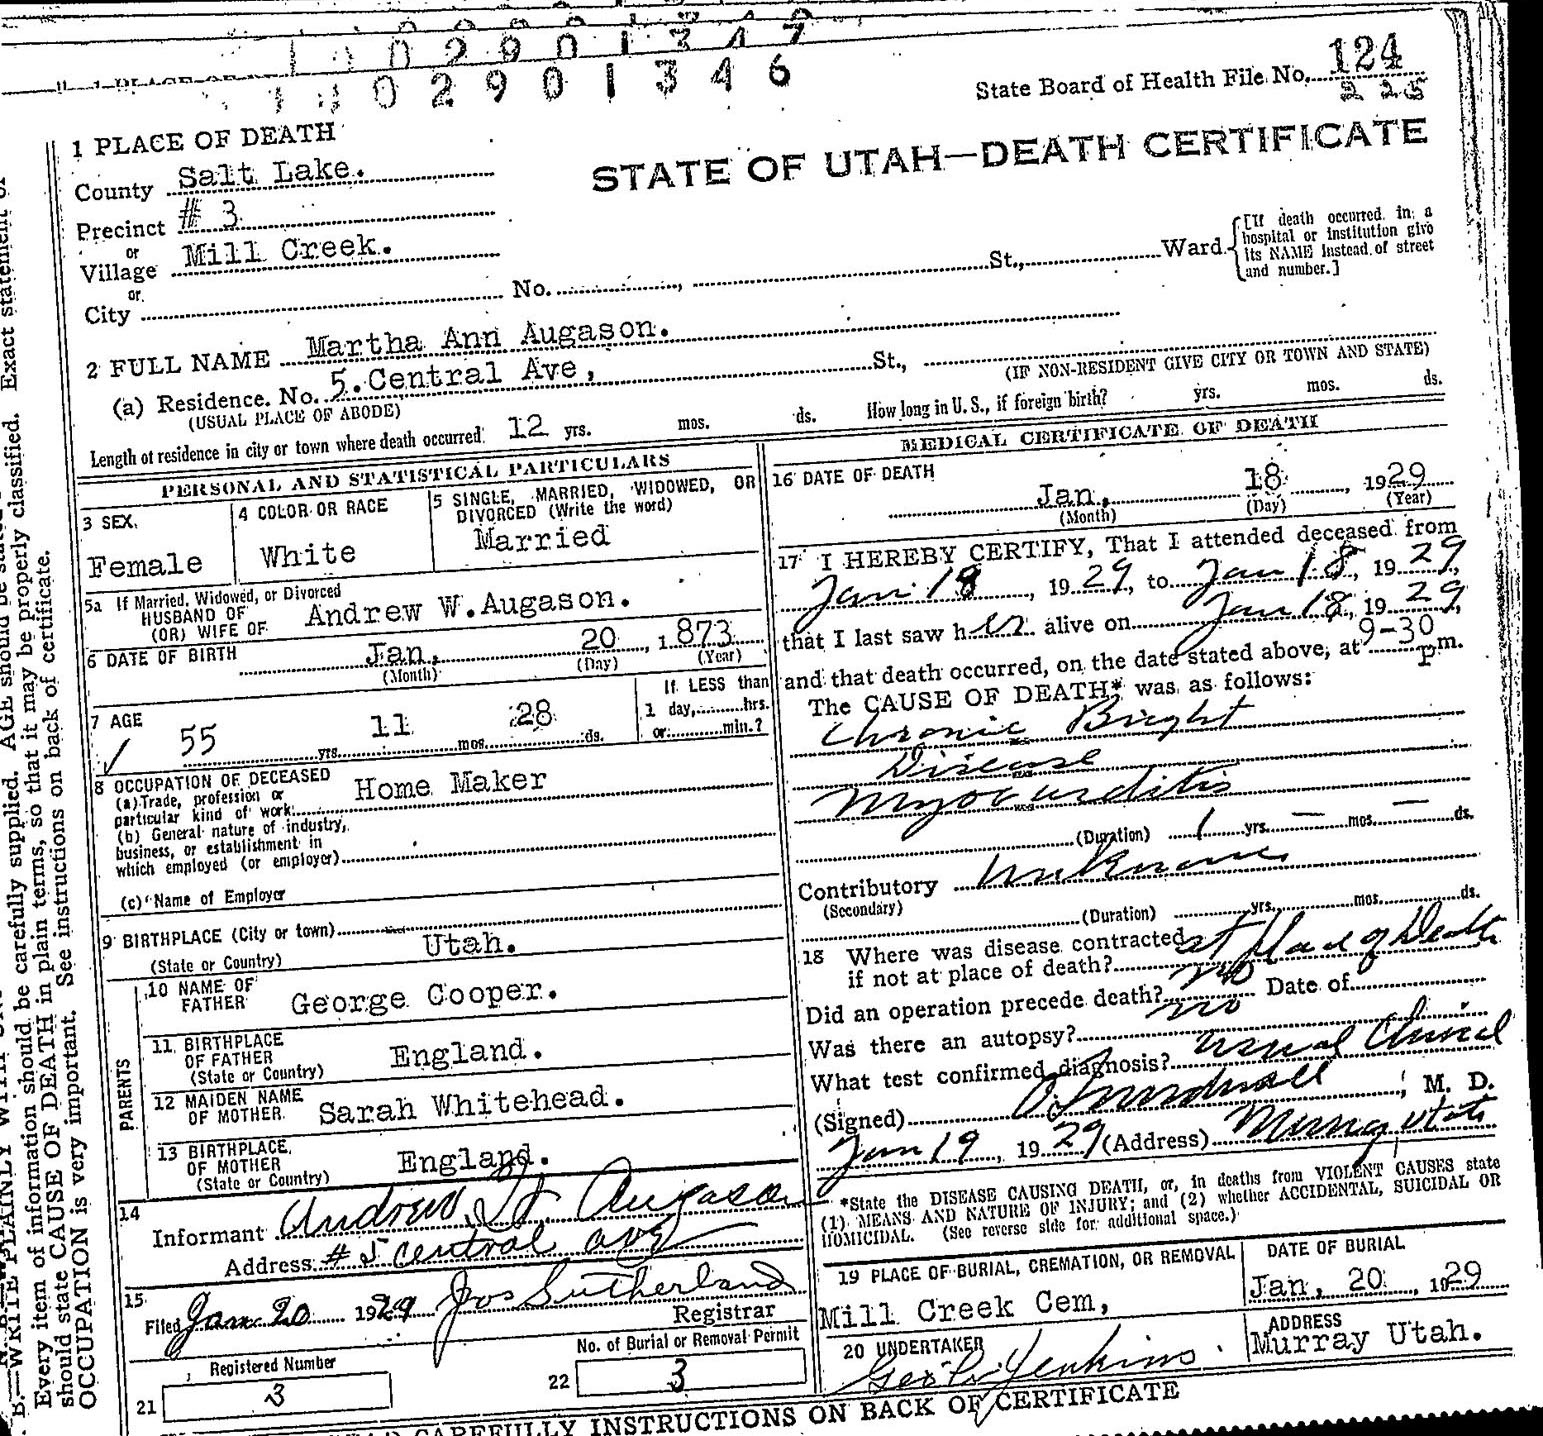 1 0 2 9 0 1 3 4 7
1 0 2 9 0 1 3 4 6
State Board of Health File No. 124
225
1 PLACE OF DEATH
STATE OF UTAH—DEATH CERTIFICATE
County Salt Lake.
Precinct # 3
or
Village Mill Creek.
or
City No. , St., Ward.
[If death occurred in a
hospital or institution give
its NAME instead of street
and number.]
2 FULL NAME Martha Ann Augason.
(a) Residence. No. 5. Central Ave, St.,
(USUAL PLACE OF ABODE) (IF NON-RESIDENT GIVE CITY OR TOWN AND STATE)
Length of residence in city or town where death occurred 12 yrs. mos. ds. How long in U. S., if foreign birth? yrs. mos. ds.
PERSONAL AND STATISTICAL PARTICULARS
3 SEX
Female
4 COLOR OR RACE
White
5 SINGLE, MARRIED, WIDOWED, OR
DIVORCED (Write the word)
Married
5a If Married, Widowed, or Divorced
HUSBAND OF
(OR) WIFE OF Andrew W. Augason.
6 DATE OF BIRTH Jan, 20, 1873
(Month) (Day) (Year)
7 AGE
55 yrs. 11 mos. 28 ds.
If LESS than
1 day, hrs.
or min.?
8 OCCUPATION OF DECEASED
(a) Trade, profession or
particular kind of work Home Maker
(b) General nature of industry,
business, or establishment in
which employed (or employer)
(c) Name of Employer
9 BIRTHPLACE (City or town)
(State or Country) Utah.
PARENTS
10 NAME OF
FATHER George Cooper.
11 BIRTHPLACE
OF FATHER
(State or Country) England.
12 MAIDEN NAME
OF MOTHER Sarah Whitehead.
13 BIRTHPLACE
OF MOTHER
(State or Country) England.
14
Informant Andrew W. Augason
Address # 5 Central Ave
15
Filed Jan 20 1929 Jos Sutherland
Registrar
Registered Number
21 3
No. of Burial or Removal Permit
22 3
MEDICAL CERTIFICATE OF DEATH
16 DATE OF DEATH
Jan, 18, 1929
(Month) (Day) (Year)
17 I HEREBY CERTIFY, That I attended deceased from
Jan 18, 1929, to Jan 18, 1929,
that I last saw her alive on Jan 18, 1929,
and that death occurred, on the date stated above, at 9-30 P m.
The CAUSE OF DEATH* was as follows:
Chronic Bright
Disease
Myocarditis
(Duration) 1 yrs. — mos. — ds.
Contributory Unknown
(Secondary)
(Duration) yrs. mos. ds.
18 Where was disease contracted
if not at place of death? at place of Death
Did an operation precede death? no Date of
Was there an autopsy? no
What test confirmed diagnosis? usual Clinical
(Signed) , M. D.
Jan 19, 1929 (Address) Murray Utah
*State the DISEASE CAUSING DEATH, or, in deaths from VIOLENT CAUSES state
(1) MEANS AND NATURE OF INJURY; and (2) whether ACCIDENTAL, SUICIDAL OR
HOMICIDAL. (See reverse side for additional space.)
19 PLACE OF BURIAL, CREMATION, OR REMOVAL
Mill Creek Cem,
DATE OF BURIAL
Jan, 20, 1929
20 UNDERTAKER
Jenkins.
ADDRESS
Murray Utah.
CAREFULLY INSTRUCTIONS ON BACK OF CERTIFICATE
B.—WRITE PLAINLY
Every item of information should be carefully supplied. AGE should be
should state CAUSE OF DEATH in plain terms, so that it may be properly classified. Exact statement of
OCCUPATION is very important. See instructions on back of certificate.